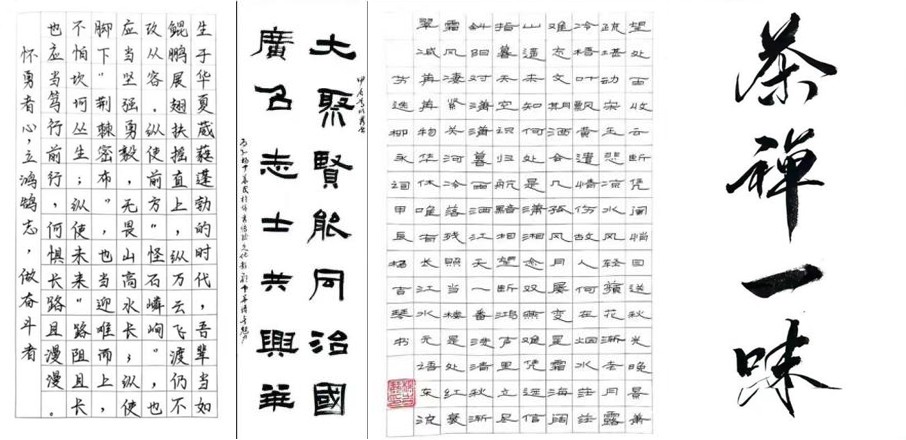 生于华夏葳蕤蓬勃的时代，吾辈当如
鲲鹏展翅扶摇直上，纵万云飞渡仍不
改从容。纵使前方“怪石嶙峋”，也
应当坚强勇毅，无畏山高水长，纵使
脚下“荆棘密布”，也当迎难而上，
不怕坎坷丛生；纵使未来“路阻且长”
也应当笃行前行，何惧长路且漫漫。
怀勇者心，立鸿鹄志，做奋斗者
大聚賢能同治國
廣召志士共興華
望处雨收云断凭阑悄目送秋光晚景萧
疏堪动宋玉悲凉水风轻蘋花渐老月露
冷梧叶飘黄遣情伤故人何在烟水茫茫
难忘文期酒会几孤风月屡变星霜海阔
山遥未知何处是潇湘念双燕难凭远信
指暮天空识归航黯相望断鸿声里立尽
斜阳对潇潇暮雨洒江天一番洗清秋渐
霜风凄紧关河冷落残照当楼是处红衰
翠减苒苒物华休唯有长江水无语东流
柳永词甲辰杨吉琴书
茶禪一味